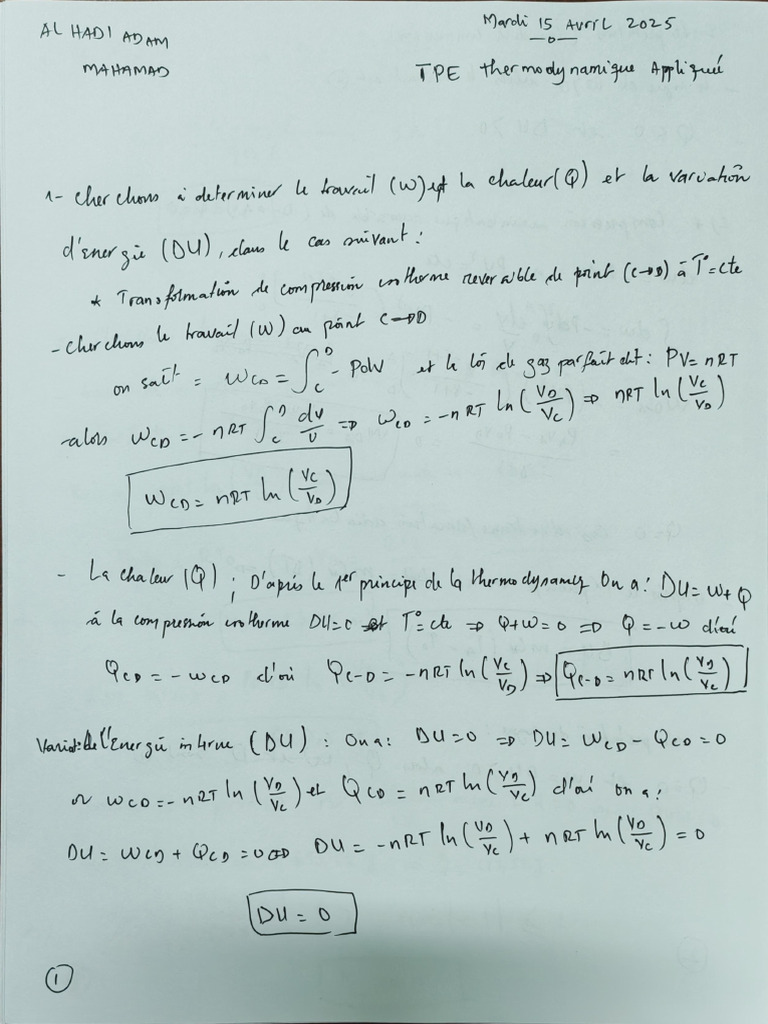 AL HADI ADAM
MAHAMAD
Mardi 15 Avril 2025
TPE thermodynamique Appliqué
1- cherchons à determiner le travail (W) et la chaleur (Q) et la variation
d'energie (DU), dans le cas suivant :
* Transformation de compression isotherme reversible de point (C→D) à T°=cte
- cherchons le travail (W) au point C→D
on sait = W_CD = ∫_C^D -PdV et le loi de gaz parfait dit : PV = nRT
alors W_CD = -nRT ∫_C^D dv/v ⇒ W_CD = -nRT ln(V_D/V_C) ⇒ nRT ln(V_C/V_D)
W_CD = nRT ln(V_C/V_D)
- La chaleur (Q) ; D'après le 1er principe de la thermodynamiq On a : DU = W+Q
à la compression isotherme DU=0 et T°=cte ⇒ Q+W=0 ⇒ Q=-W d'où
Q_CD = -W_CD d'où Q_C-D = -nRT ln(V_C/V_D) ⇒ Q_C-D = nRT ln(V_D/V_C)
Variat: de l'Energie interne (DU) : On a : DU=0 ⇒ DU = W_CD - Q_CD = 0
or W_CD = -nRT ln(V_D/V_C) et Q_CD = nRT ln(V_D/V_C) d'où on a :
DU = W_CD + Q_CD = 0 ⇒ DU = -nRT ln(V_D/V_C) + nRT ln(V_D/V_C) = 0
DU = 0
1